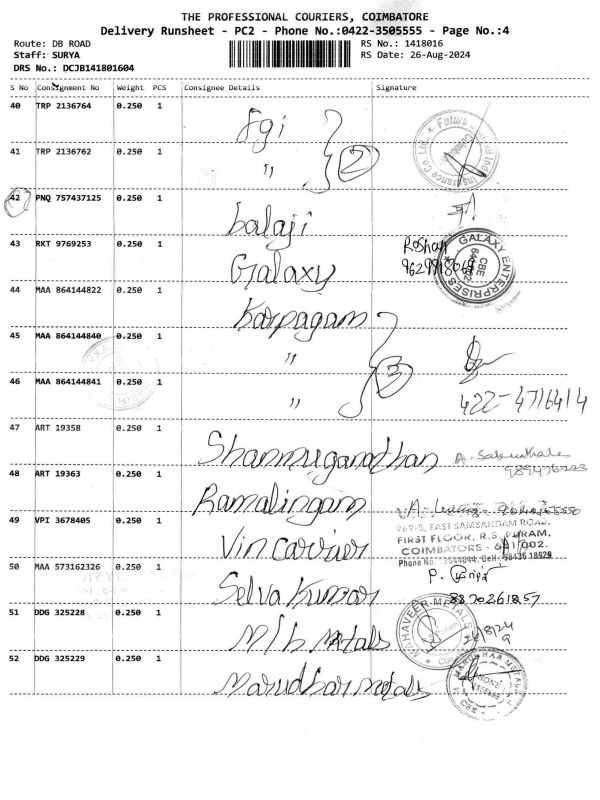 THE PROFESSIONAL COURIERS, COIMBATORE
Delivery Runsheet - PC2 - Phone No.:0422-3505555 - Page No.:4
Route: DB ROAD RS No.: 1418016
Staff: SURYA RS Date: 26-Aug-2024
DRS No.: DCJB141801604
S No Consignment No Weight PCS Consignee Details Signature
40 TRP 2136764 0.250 1 Fgi
41 TRP 2136762 0.250 1 " 2
42 PNQ 757437125 0.250 1 balaji
43 RKT 9769253 0.250 1 Galaxy Roshan
GALAXY ENTERPRISES CBE
44 MAA 864144822 0.250 1 Karpagam
45 MAA 864144840 0.250 1 "
46 MAA 864144841 0.250 1 " 3
422-4716414
47 ART 19358 0.250 1 Shanmuganathan
48 ART 19363 0.250 1 Ramalingam
49 VPI 3678405 0.250 1 Vin Carrier
EAST SAMBANDAM ROAD,
FIRST FLOOR, R.S. PURAM,
COIMBATORE - 641 002.
50 MAA 573162326 0.250 1 Selva Kumar
8870261857
51 DDG 325228 0.250 1 M/h Metals
MAHAVEER METALS
52 DDG 325229 0.250 1 Marudhar metals
MARUDHAR METALS